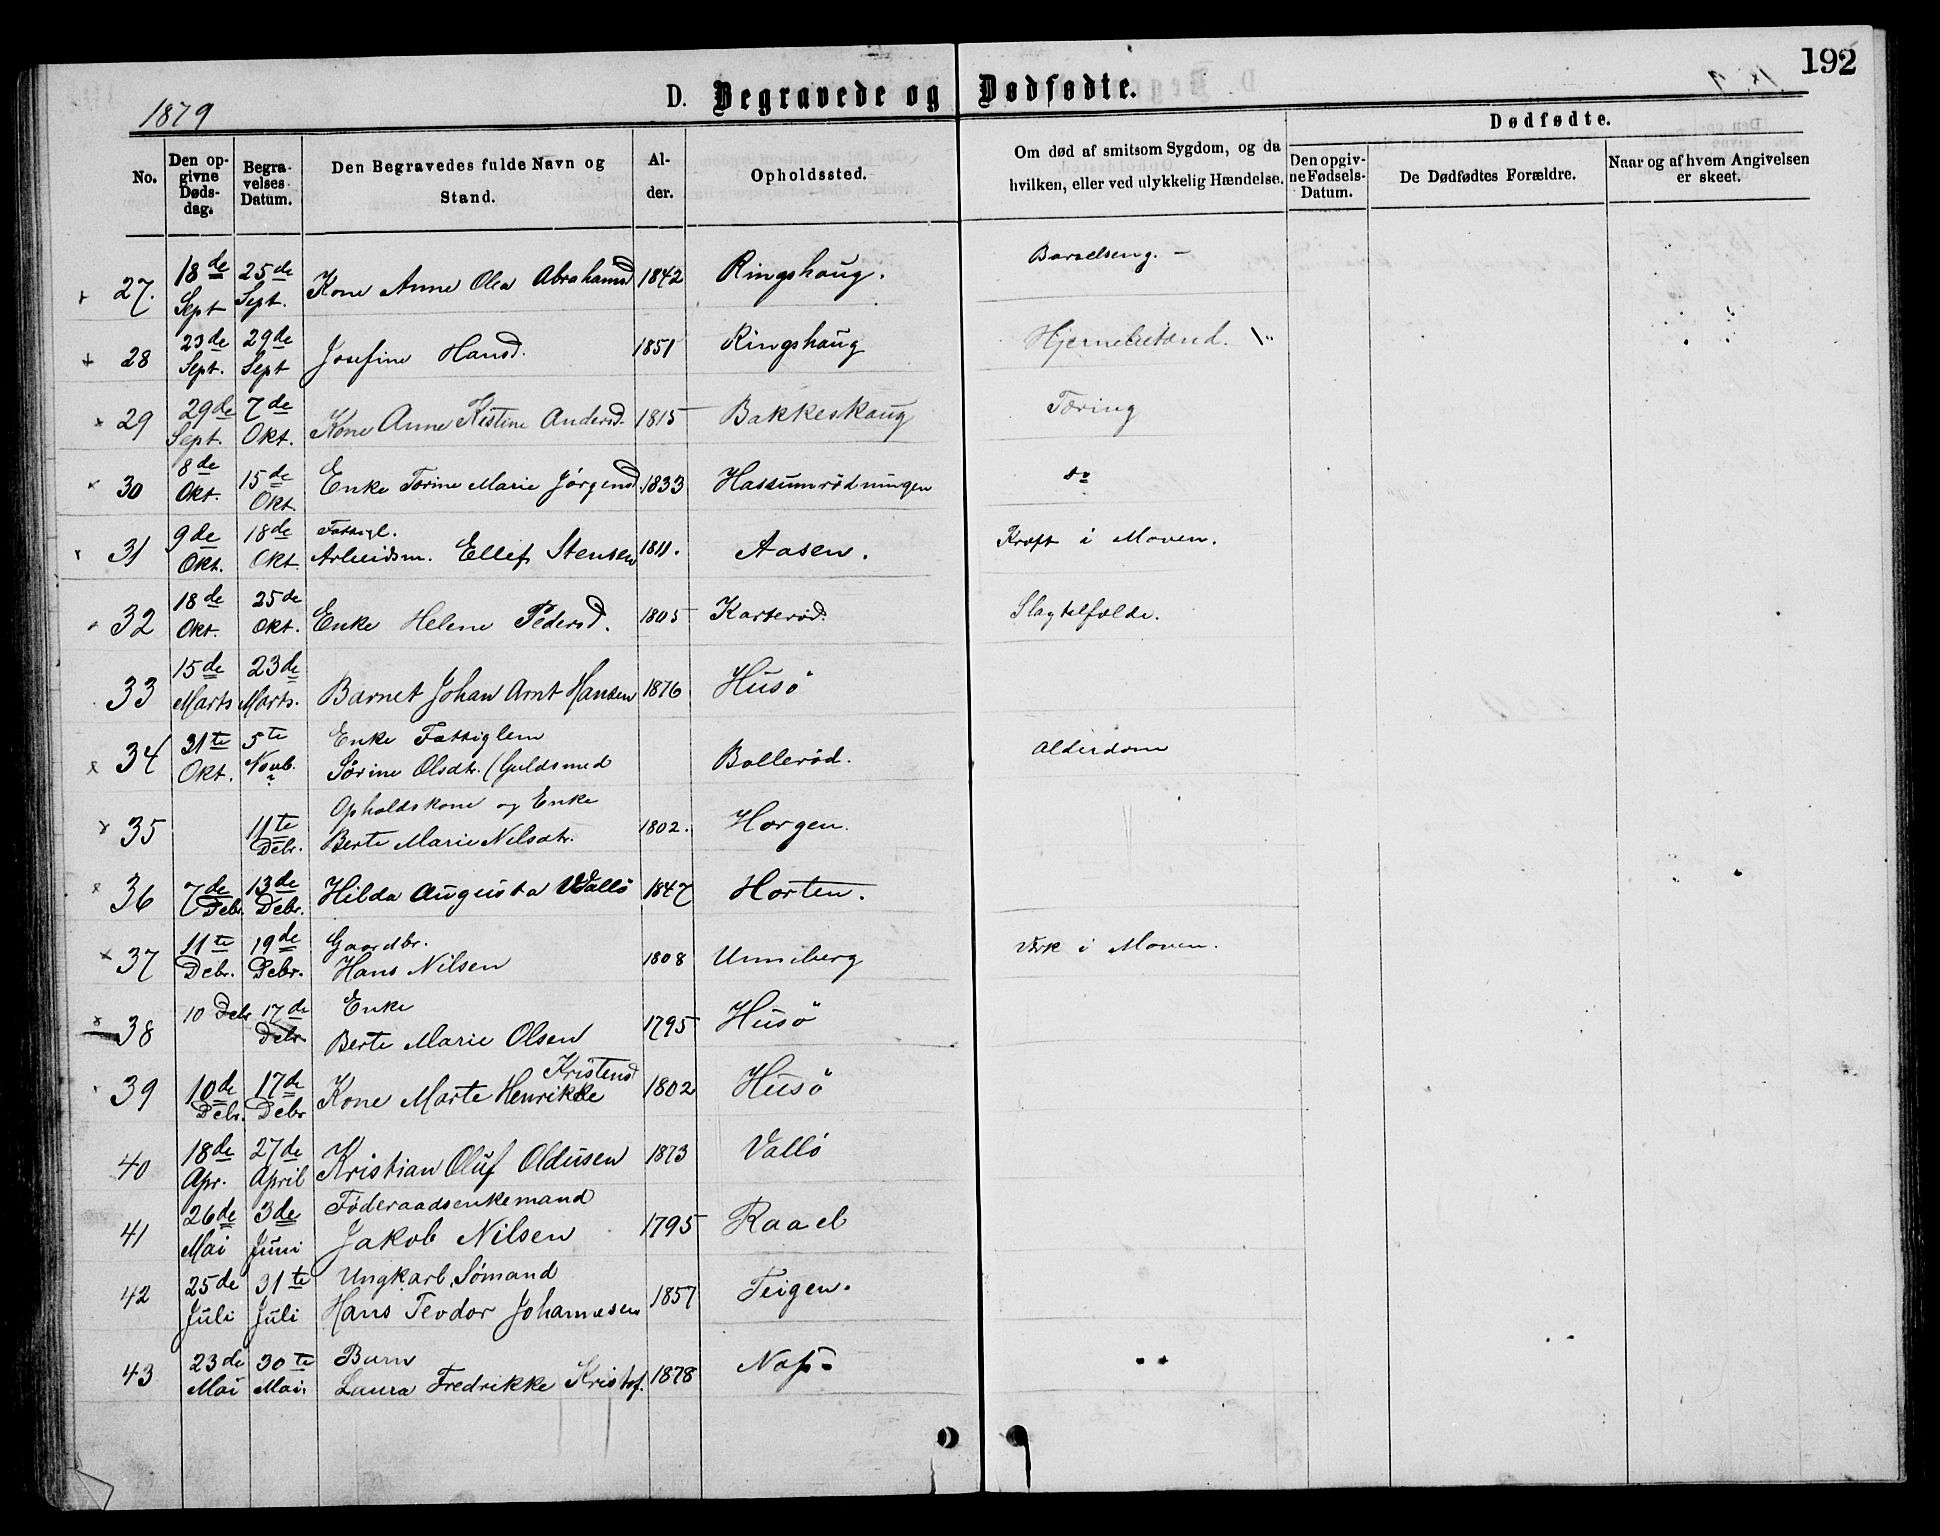 192
1879
D. Begravede og Dødfødte.
No.
Den opgivne Dødsdag.
Begravelses Datum.
Den Begravedes fulde Navn og Stand.
Alder.
Opholdssted.
Om død af smitsom Sygdom, og da hvilken, eller ved ulykkelig Hændelse.
Dødfødte.
Den opgivne Fødsels-Datum.
De Dødfødtes Forældre.
Naar og af hvem Angivelsen er skeet.
27. 18de Sept 25de Sept. Kone Anne Olea Abrahamsd 1842 Ringshaug. Barselseng. -
28 23de Sept. 29de Sept Josefine Hansd. 1851 Ringshaug Hjernebetænd.
29 29de Sept. 7de Okt. Kone Anne Kistine Andersd. 1815 Bakkeskaug Tæring
30 8de Okt. 15de Okt. Enke Torine Marie Jørgensd 1833 Hassumrødningen do
31 9de Okt. 18de Okt. Fattigl. Arbeidsm. Ellef Stensen 1811. Aasen. Kræft i Maven.
32 18de Okt. 25de Okt. Enke Helene Pedersd. 1805 Karterød. Slagtelfælde.
33 15de Marts 23de Marts. Barnet Johan Arnt Hansen 1876 Husö
34 31te Okt. 5te Novb. Enke Fattiglem Sørine Olsdtr. (Guldsmed Bollerød. Alderdom
35 11te Debr. Opholdskone og Enke Berte Marie Nilsdtr. 1802. Horgen.
36 7de Debr. 13de Debr. Hilda Augusta Vallö 1847 Horten.
37 11te Debr. 19de Debr. Gaardbr. Hans Nilsen 1808 Unneberg Værk i Maven.
38 10 Debr 17de Debr. Enke Berte Marie Olsen 1795 Husö
39 10de Debr. 17de Debr Kone Marte Henrikke Kristensd 1802 Husö
40 18de Apr. 27de April Kristian Oluf Oldusen 1873 Vallö
41 26de Mai 3de Juni Føderaadsenkemand Jakob Nilsen 1795 Raael
42 25de Juli 31te Juli Ungkarl, Sømand Hans Teodor Johannesen 1857 Teigen.
43 23de Mai 30te Mai. Barn Laura Fredrikke Kristof. 1878 Nas-